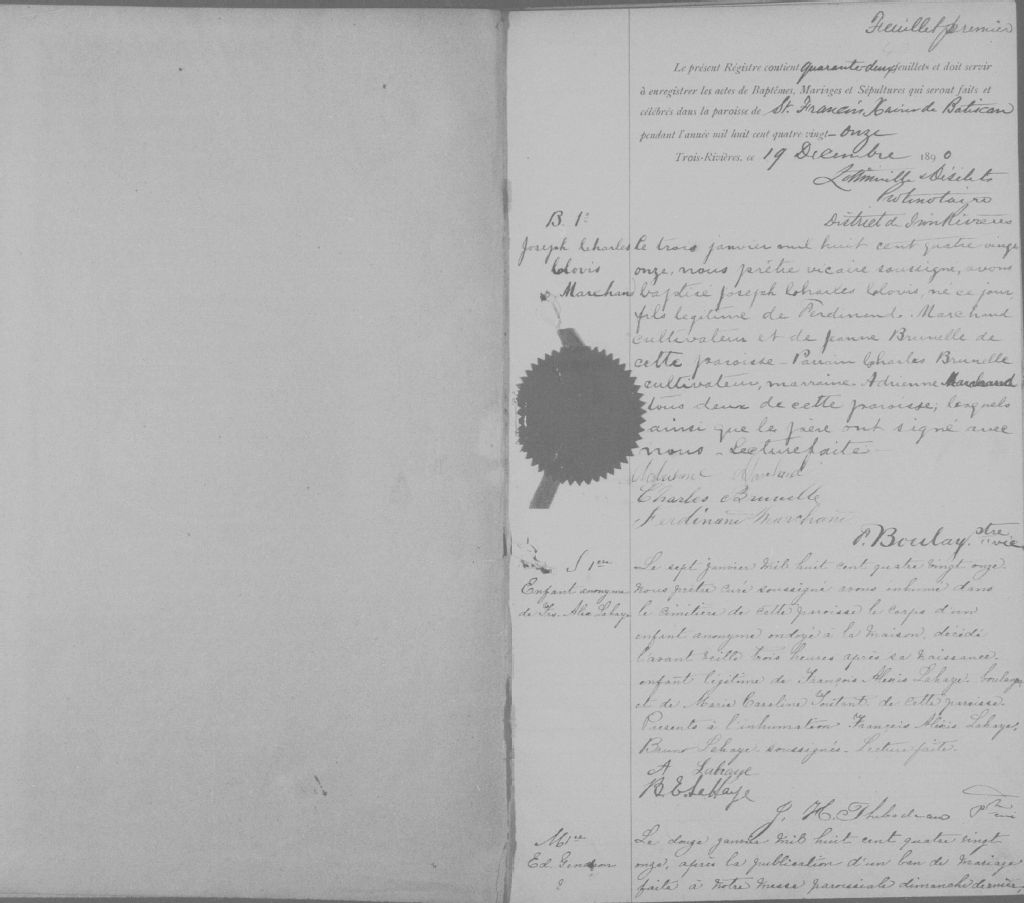 Feuillet premier
Le présent Régistre contient quarante deux feuillets et doit servir
à enregistrer les actes de Baptêmes, Mariages et Sépultures qui seront faits et
célébrés dans la paroisse de St. Francois Xavier de Batiscan
pendant l'année mil huit cent quatre vingt-onze
Trois-Rivières, ce 19 Decembre 1890
Désilets
Protonotaire
District de Trois Rivières
B. 1e
Joseph Charles
Clovis
Marchand
le trois janvier mil huit cent quatre vingt
onze, nous prêtre vicaire soussigné, avons
baptisé Joseph Charles Clovis, né ce jour,
fils légitime de Ferdinand Marchand
cultivateur et de Jeanne Brunelle de
cette paroisse - Parrain Charles Brunelle
cultivateur, marraine Adrienne Marchand
tous deux de cette paroisse, lesquels
ainsi que le père ont signé avec
nous - Lecture faite
Adrienne Marchand
Charles Brunelle
Ferdinand Marchand
P. Boulay. ptre
vic
S 1ere
Enfant anonyme
de Frs. Alex Lahaye
Le sept janvier mil huit cent quatre vingt onze
Nous prêtre curé soussigné avons inhumé dans
le cimitière de cette paroisse le corps d'un
enfant anonyme ondoyé à la maison, décédé
l'avant veille trois heures après sa naissance.
enfant légitime de François Alexis Lahaye. boulanger
et de Marie Caroline de cette paroisse.
Présents à l'inhumation François Alexis Lahaye,
Bruno Lahaye soussignés - Lecture faite.
A Lahaye
B. E. LaHaye
J. H. Thibodeau Ptre
M 1re
Ed. Gendron
&
Le douze janvier mil huit cent quatre vingt
onze, après la publication d'un ban de mariage
faite à notre messe paroissiale dimanche dernier,